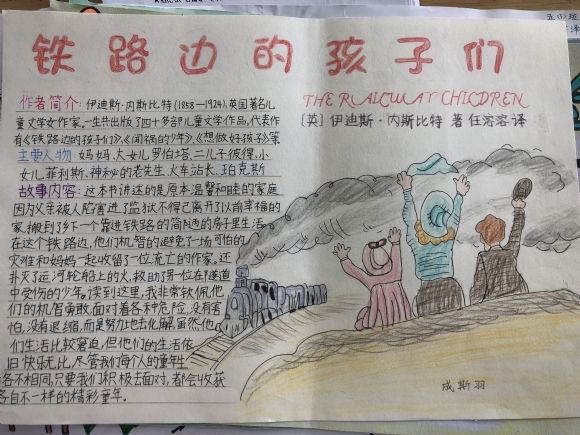 铁路边的孩子们
作者简介:伊迪斯·内斯比特(1858—1924),英国著名儿
童文学女作家。一生共出版了四十多部儿童文学作品,代表作
有《铁路边的孩子们》、《闯祸的少年》、《想做好孩子》等。
主要人物:妈妈、大女儿罗伯塔、二儿子彼得、小
女儿菲利斯、神秘的老先生、火车站长、珀克斯
故事内容:这本书讲述的是原本温馨和睦的家庭
因为父亲被人陷害进了监狱不得已离开了以前幸福的
家,搬到了乡下一个靠近铁路的简陋的房子里生活。
在这个铁路边,他们机智的避免了一场可怕的
灾难和妈妈一起收留了一位流亡的作家。还
扑灭了运河轮船上的火,救助了另一位在隧道
中受伤的少年。读到这里,我非常钦佩他
们的机智勇敢,面对着各种危险,没有害
怕,没有退缩,而是努力地去化解,虽然他
们生活比较窘迫,但他们的生活依
旧快乐无比,尽管我们每个人的童年生
各不相同,只要我们积极去面对,都会收获
各自不一样的精彩童年。
THE RAILWAY CHILDREN
[英] 伊迪斯·内斯比特 著 任溶溶 译
成斯羽